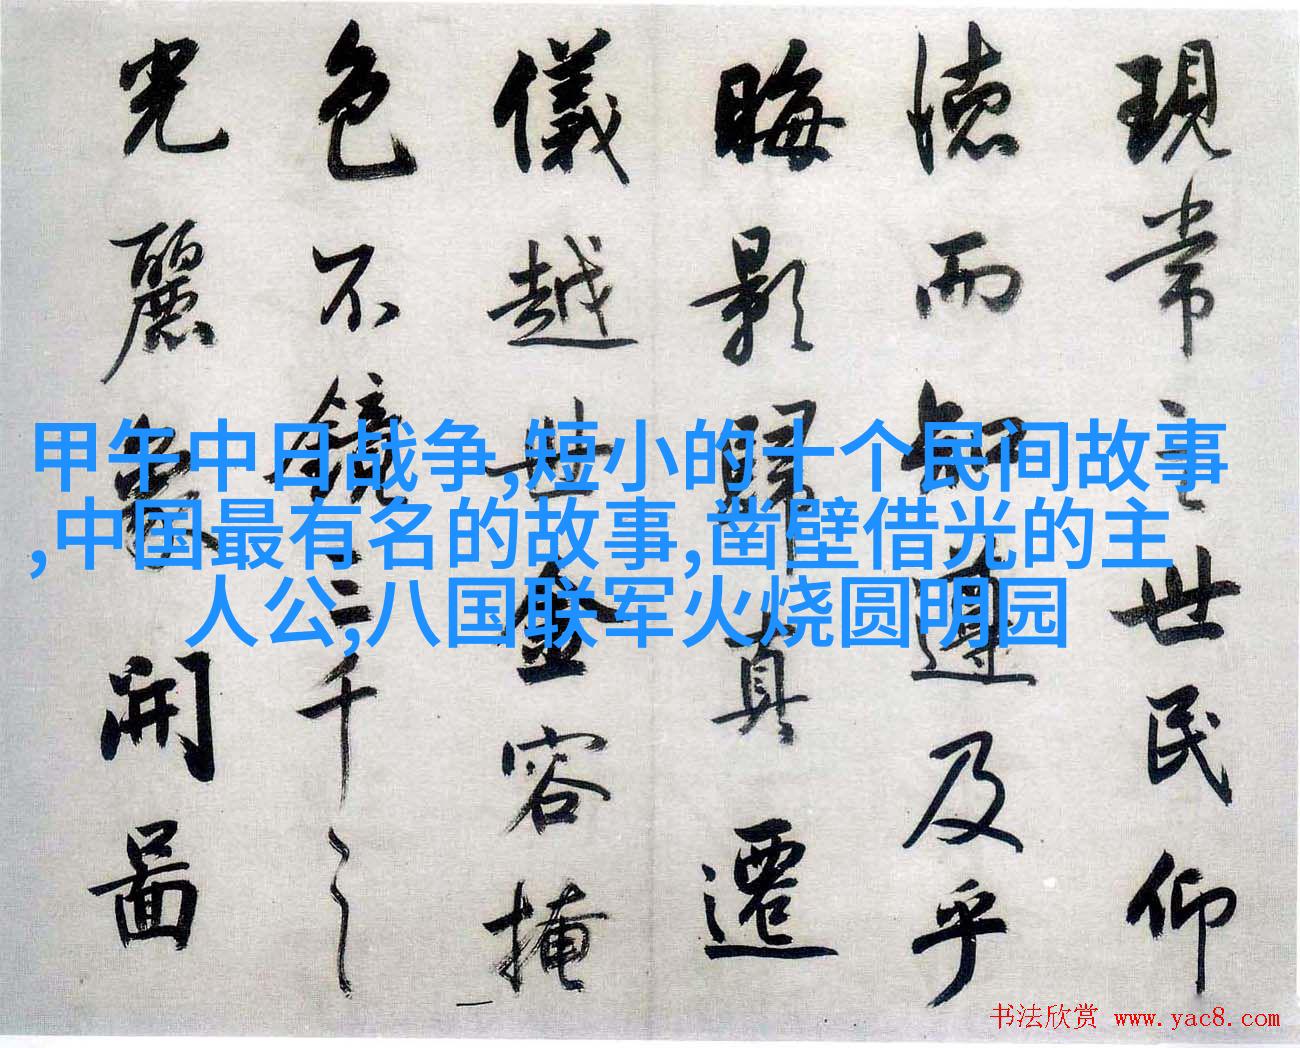 現常主世民仰
德而知遵及乎
晦影歸真遷
儀越世金容掩
色不鏡三千之
光麗象開圖
甲午中日战争,短小的十个民间故事
,中国最有名的故事,凿壁借光的主
人公,八国联军火烧圆明园
书法欣赏 www.yac8.com